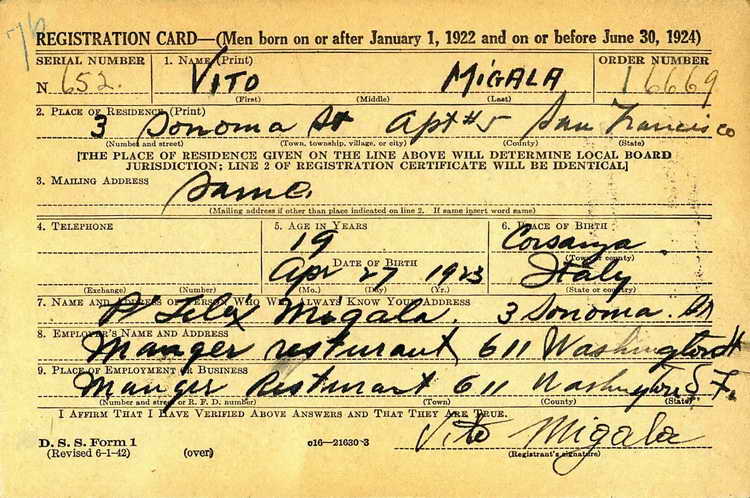 76
REGISTRATION CARD—(Men born on or after January 1, 1922 and on or before June 30, 1924)
SERIAL NUMBER 1. NAME (Print) ORDER NUMBER
N 652. VITO MIGALA 16669
(First) (Middle) (Last)
2. PLACE OF RESIDENCE (Print)
3 Sonoma St Apt #5 San Francisco
(Number and street) (Town, township, village, or city) (County) (State)
[THE PLACE OF RESIDENCE GIVEN ON THE LINE ABOVE WILL DETERMINE LOCAL BOARD
JURISDICTION; LINE 2 OF REGISTRATION CERTIFICATE WILL BE IDENTICAL]
3. MAILING ADDRESS
Same.
(Mailing address if other than place indicated on line 2. If same insert word same)
4. TELEPHONE 5. AGE IN YEARS 6. PLACE OF BIRTH
19 Corsanya
DATE OF BIRTH (Town or county)
Apr 27 1923 Italy
(Exchange) (Number) (Mo.) (Day) (Yr.) (State or country)
7. NAME AND ADDRESS OF PERSON WHO WILL ALWAYS KNOW YOUR ADDRESS
Felix Migala. 3 Sonoma. St
8. EMPLOYER'S NAME AND ADDRESS
Manger resturant 611 Washington St
9. PLACE OF EMPLOYMENT OR BUSINESS
Manger Resturant 611 Washington S.F.
(Number and street or R. F. D. number) (Town) (County) (State)
I AFFIRM THAT I HAVE VERIFIED ABOVE ANSWERS AND THAT THEY ARE TRUE.
D. S. S. Form 1 o16—21630-3 Vito Migala
(Revised 6-1-42) (over) (Registrant's signature)